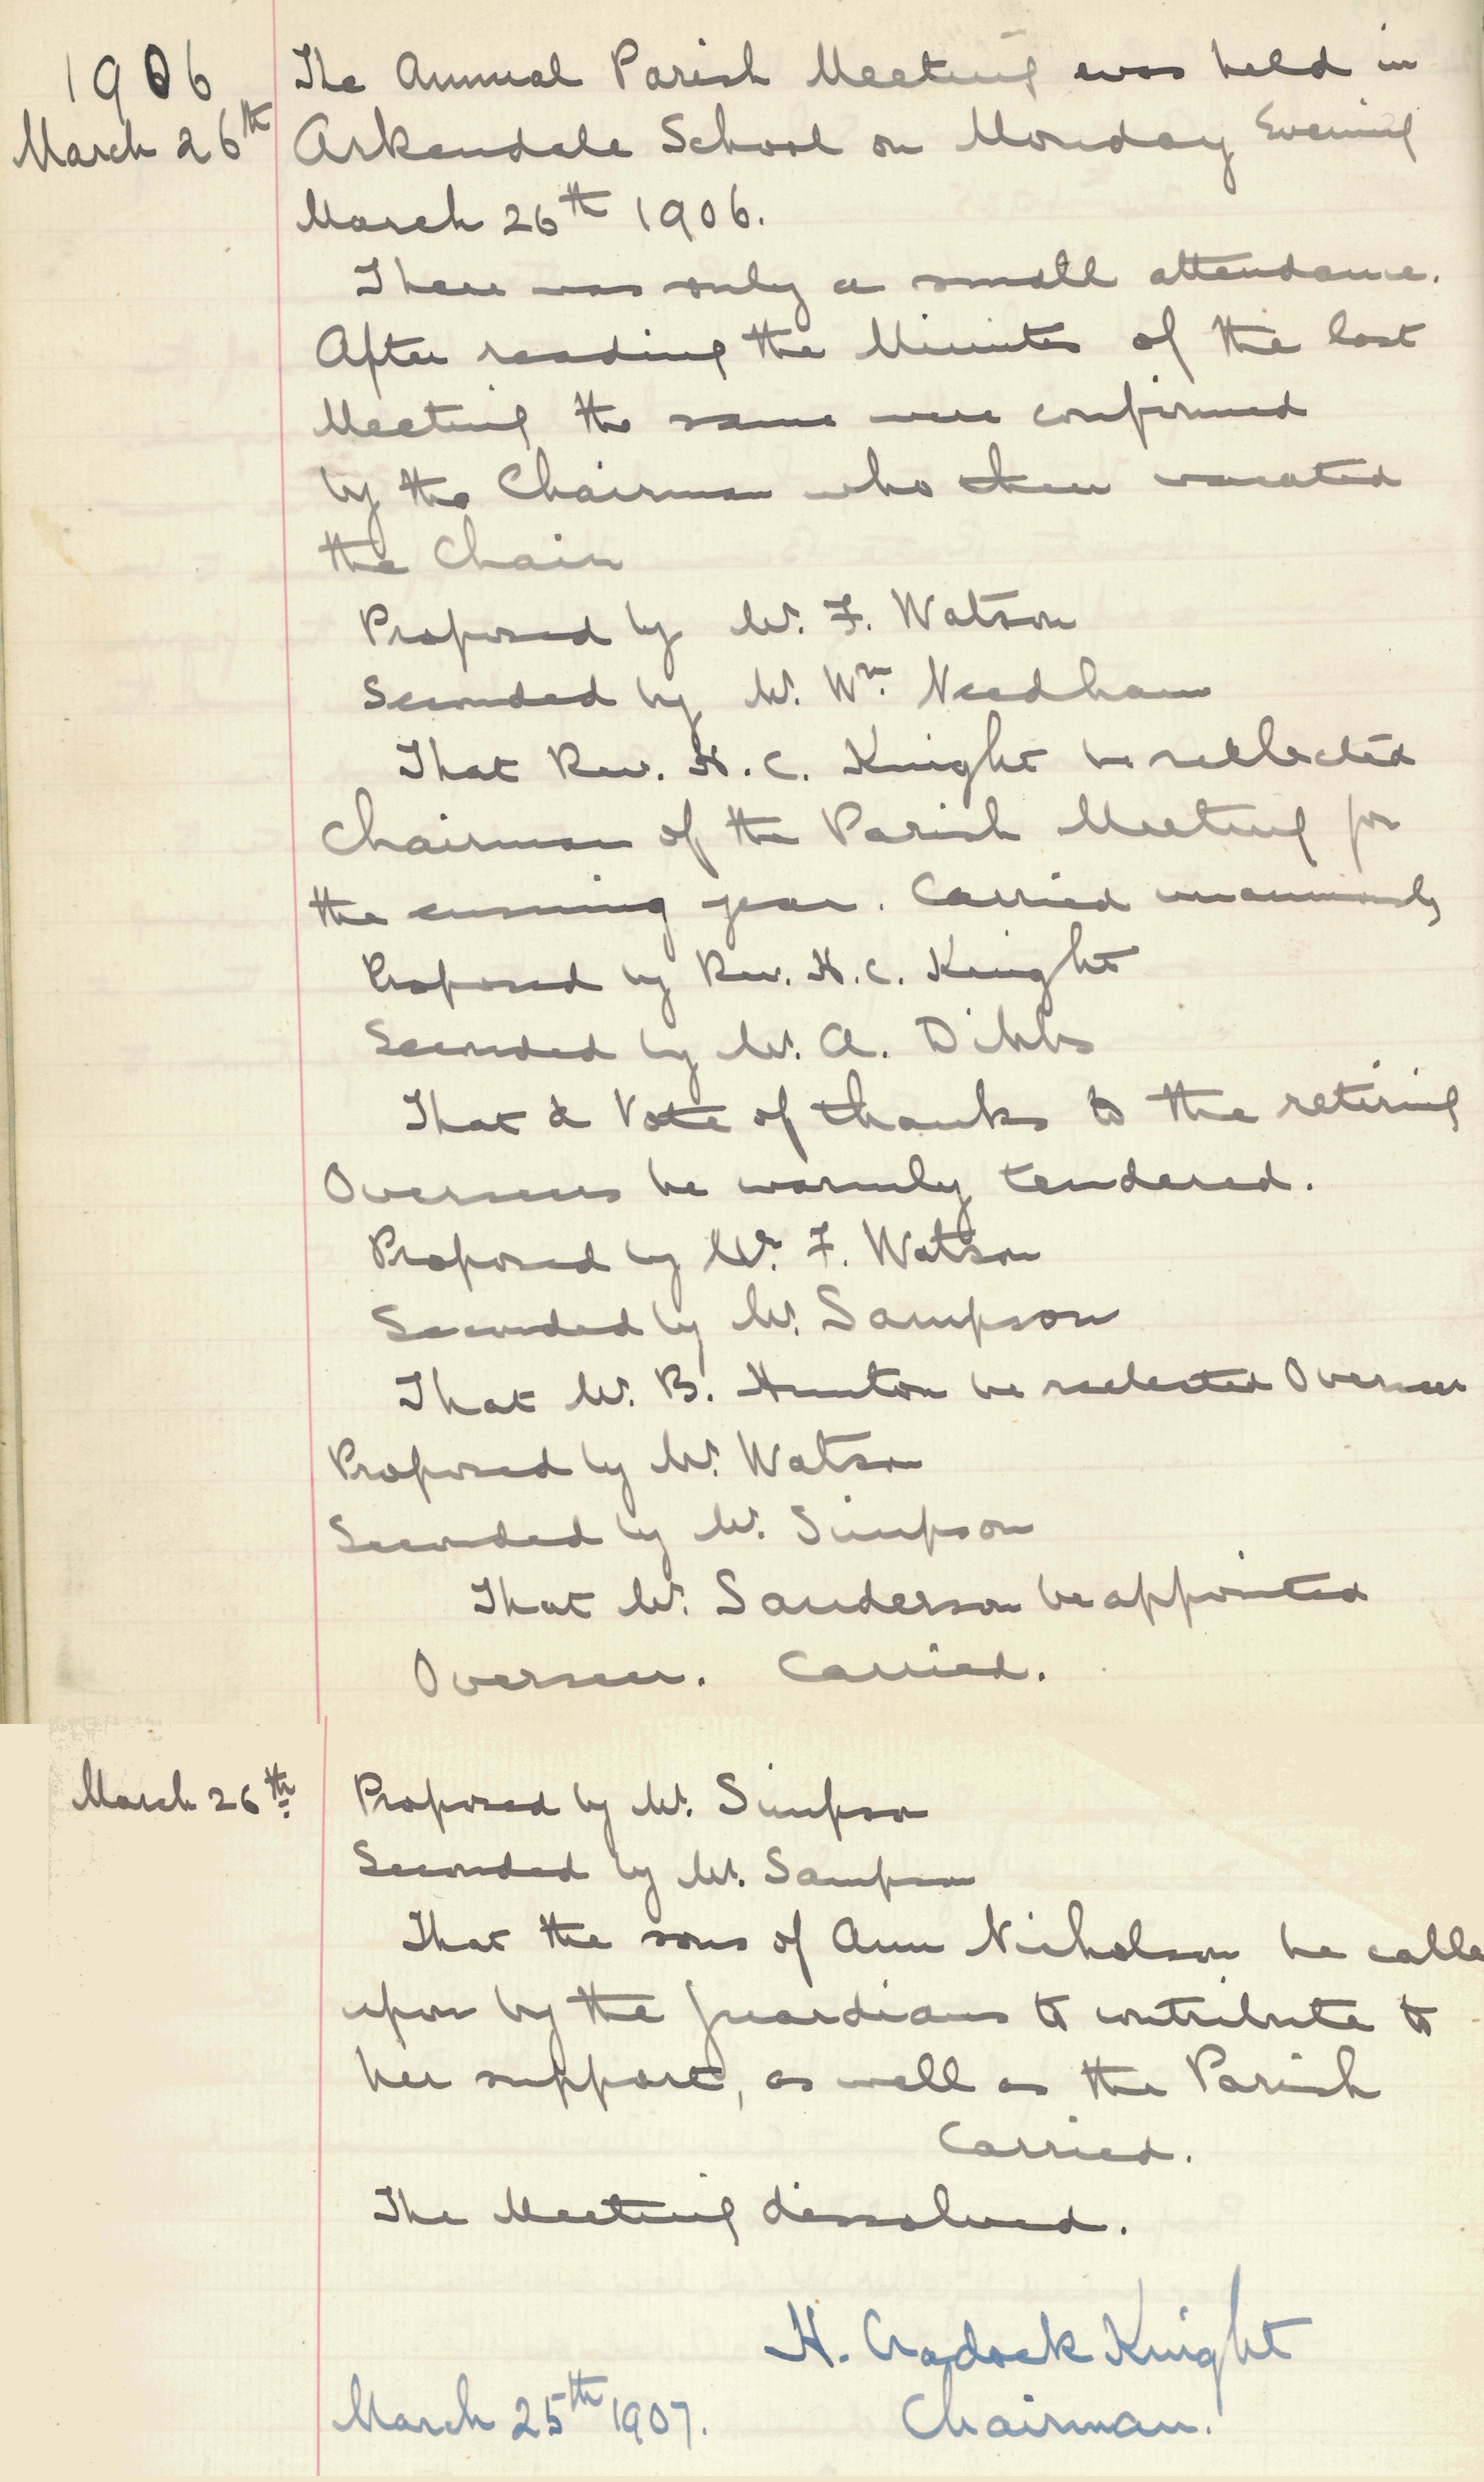 1906
March 26th
The Annual Parish Meeting was held in
Arkendale School on Monday Evening
March 26th 1906.
There was only a small attendance.
After reading the Minutes of the last
Meeting the same were confirmed
by the Chairman who then vacated
the Chair
Proposed by Mr. F. Watson
Seconded by Mr. Wm. Needham
That Rev. H. C. Knight be reelected
Chairman of the Parish Meeting for
the ensuing year. Carried unanimously
Proposed by Rev. H. C. Knight
Seconded by Mr. A. Dibbs
That a Vote of thanks to the retiring
Overseers be warmly tendered.
Proposed by Mr. F. Watson
Seconded by Mr. Sampson
That Mr. B. Hunton be reelected Overseer
Proposed by Mr. Watson
Seconded by Mr. Simpson
That Mr. Sanderson be appointed
Overseer. Carried.
March 26th
Proposed by Mr. Simpson
Seconded by Mr. Sampson
That the sons of Ann Nicholson be calle
upon by the guardians to contribute to
her support, as well as the Parish
Carried.
The Meeting dissolved.
H. Cradock Knight
March 25th 1907.
Chairman.